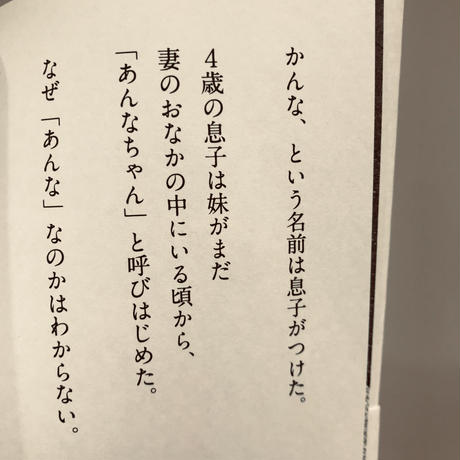 かんな、という名前は息子がつけた。
4歳の息子は妹がまだ
妻のおなかの中にいる頃から、
「あんなちゃん」と呼びはじめた。
なぜ「あんな」なのかはわからない。